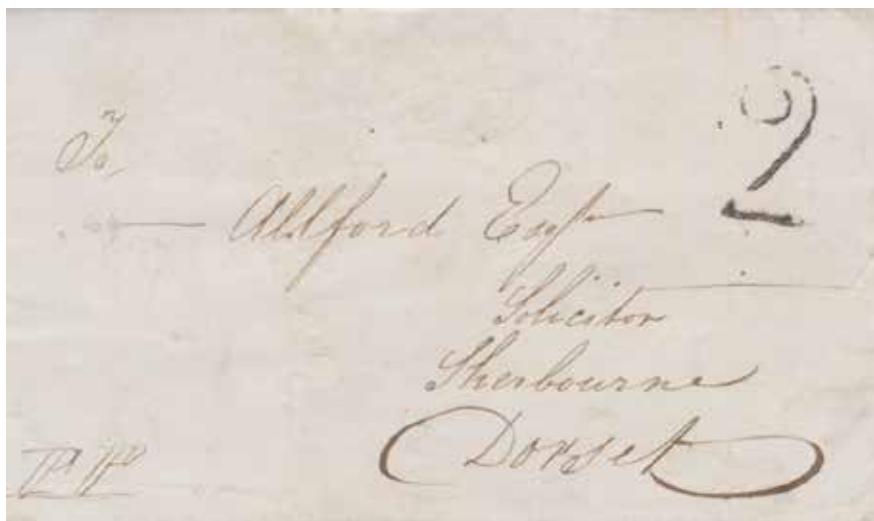 To
2
— Allford Esqr
Solicitor
Sherbourne
Dorset